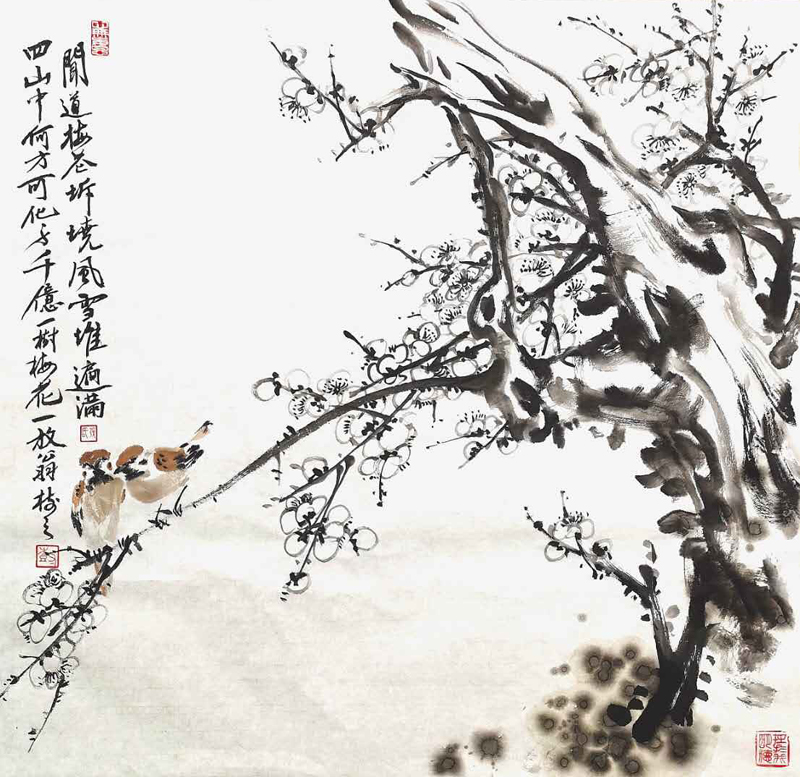 聞道梅花坼曉風雪堆遍滿
四山中何方可化身千億一樹梅花一放翁